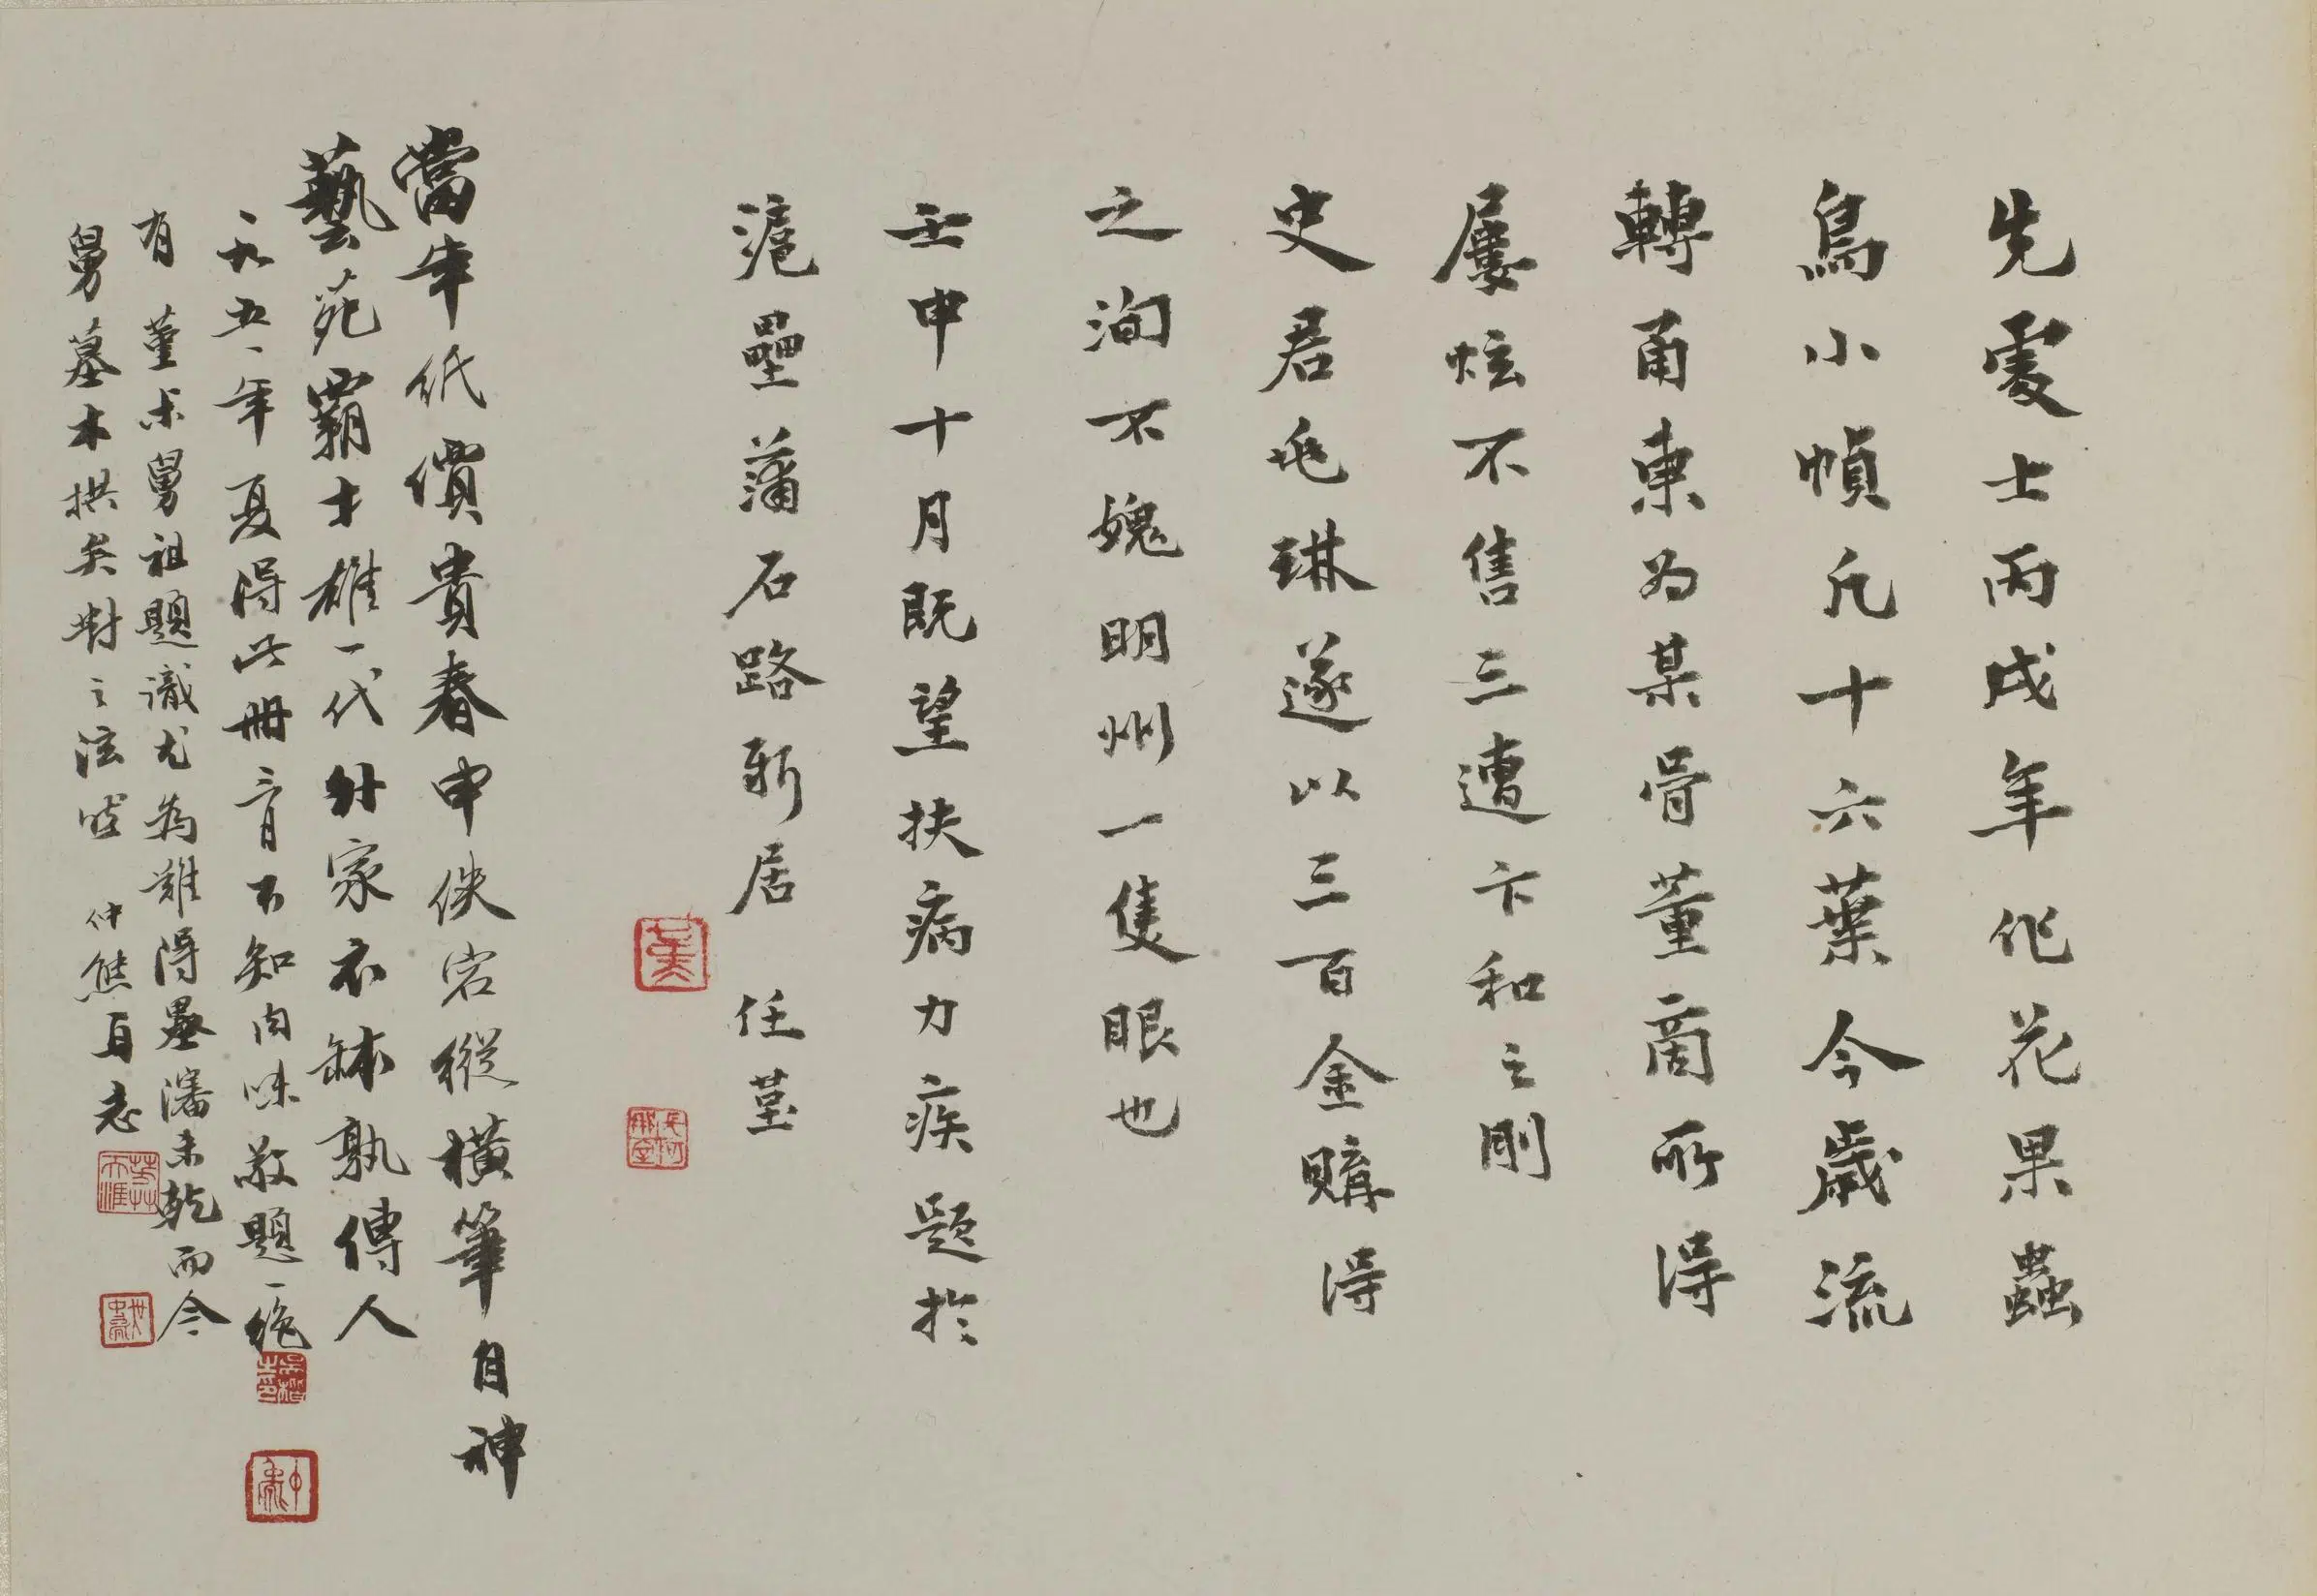 先處士丙戌年作花果蟲
鳥小幀凡十六葉今歲流
轉甬東為某骨董商所得
屢炫不售三遭卞和之刖
史君毛琳遂以三百金購得
之洵不媿明州一隻眼也
壬申十月既望扶病力疾題於
滬壘蒲石路新居 任堇
當年紙價貴春申佚宕縱橫筆自神
藝苑霸才雄一代外家衣缽孰傳人
一九五一年夏得此冊三月不知肉味敬題一絕
有堇未舅祖題識尤為難得墨瀋未乾而今
舅墓木拱矣對之泫然 仲熊再志